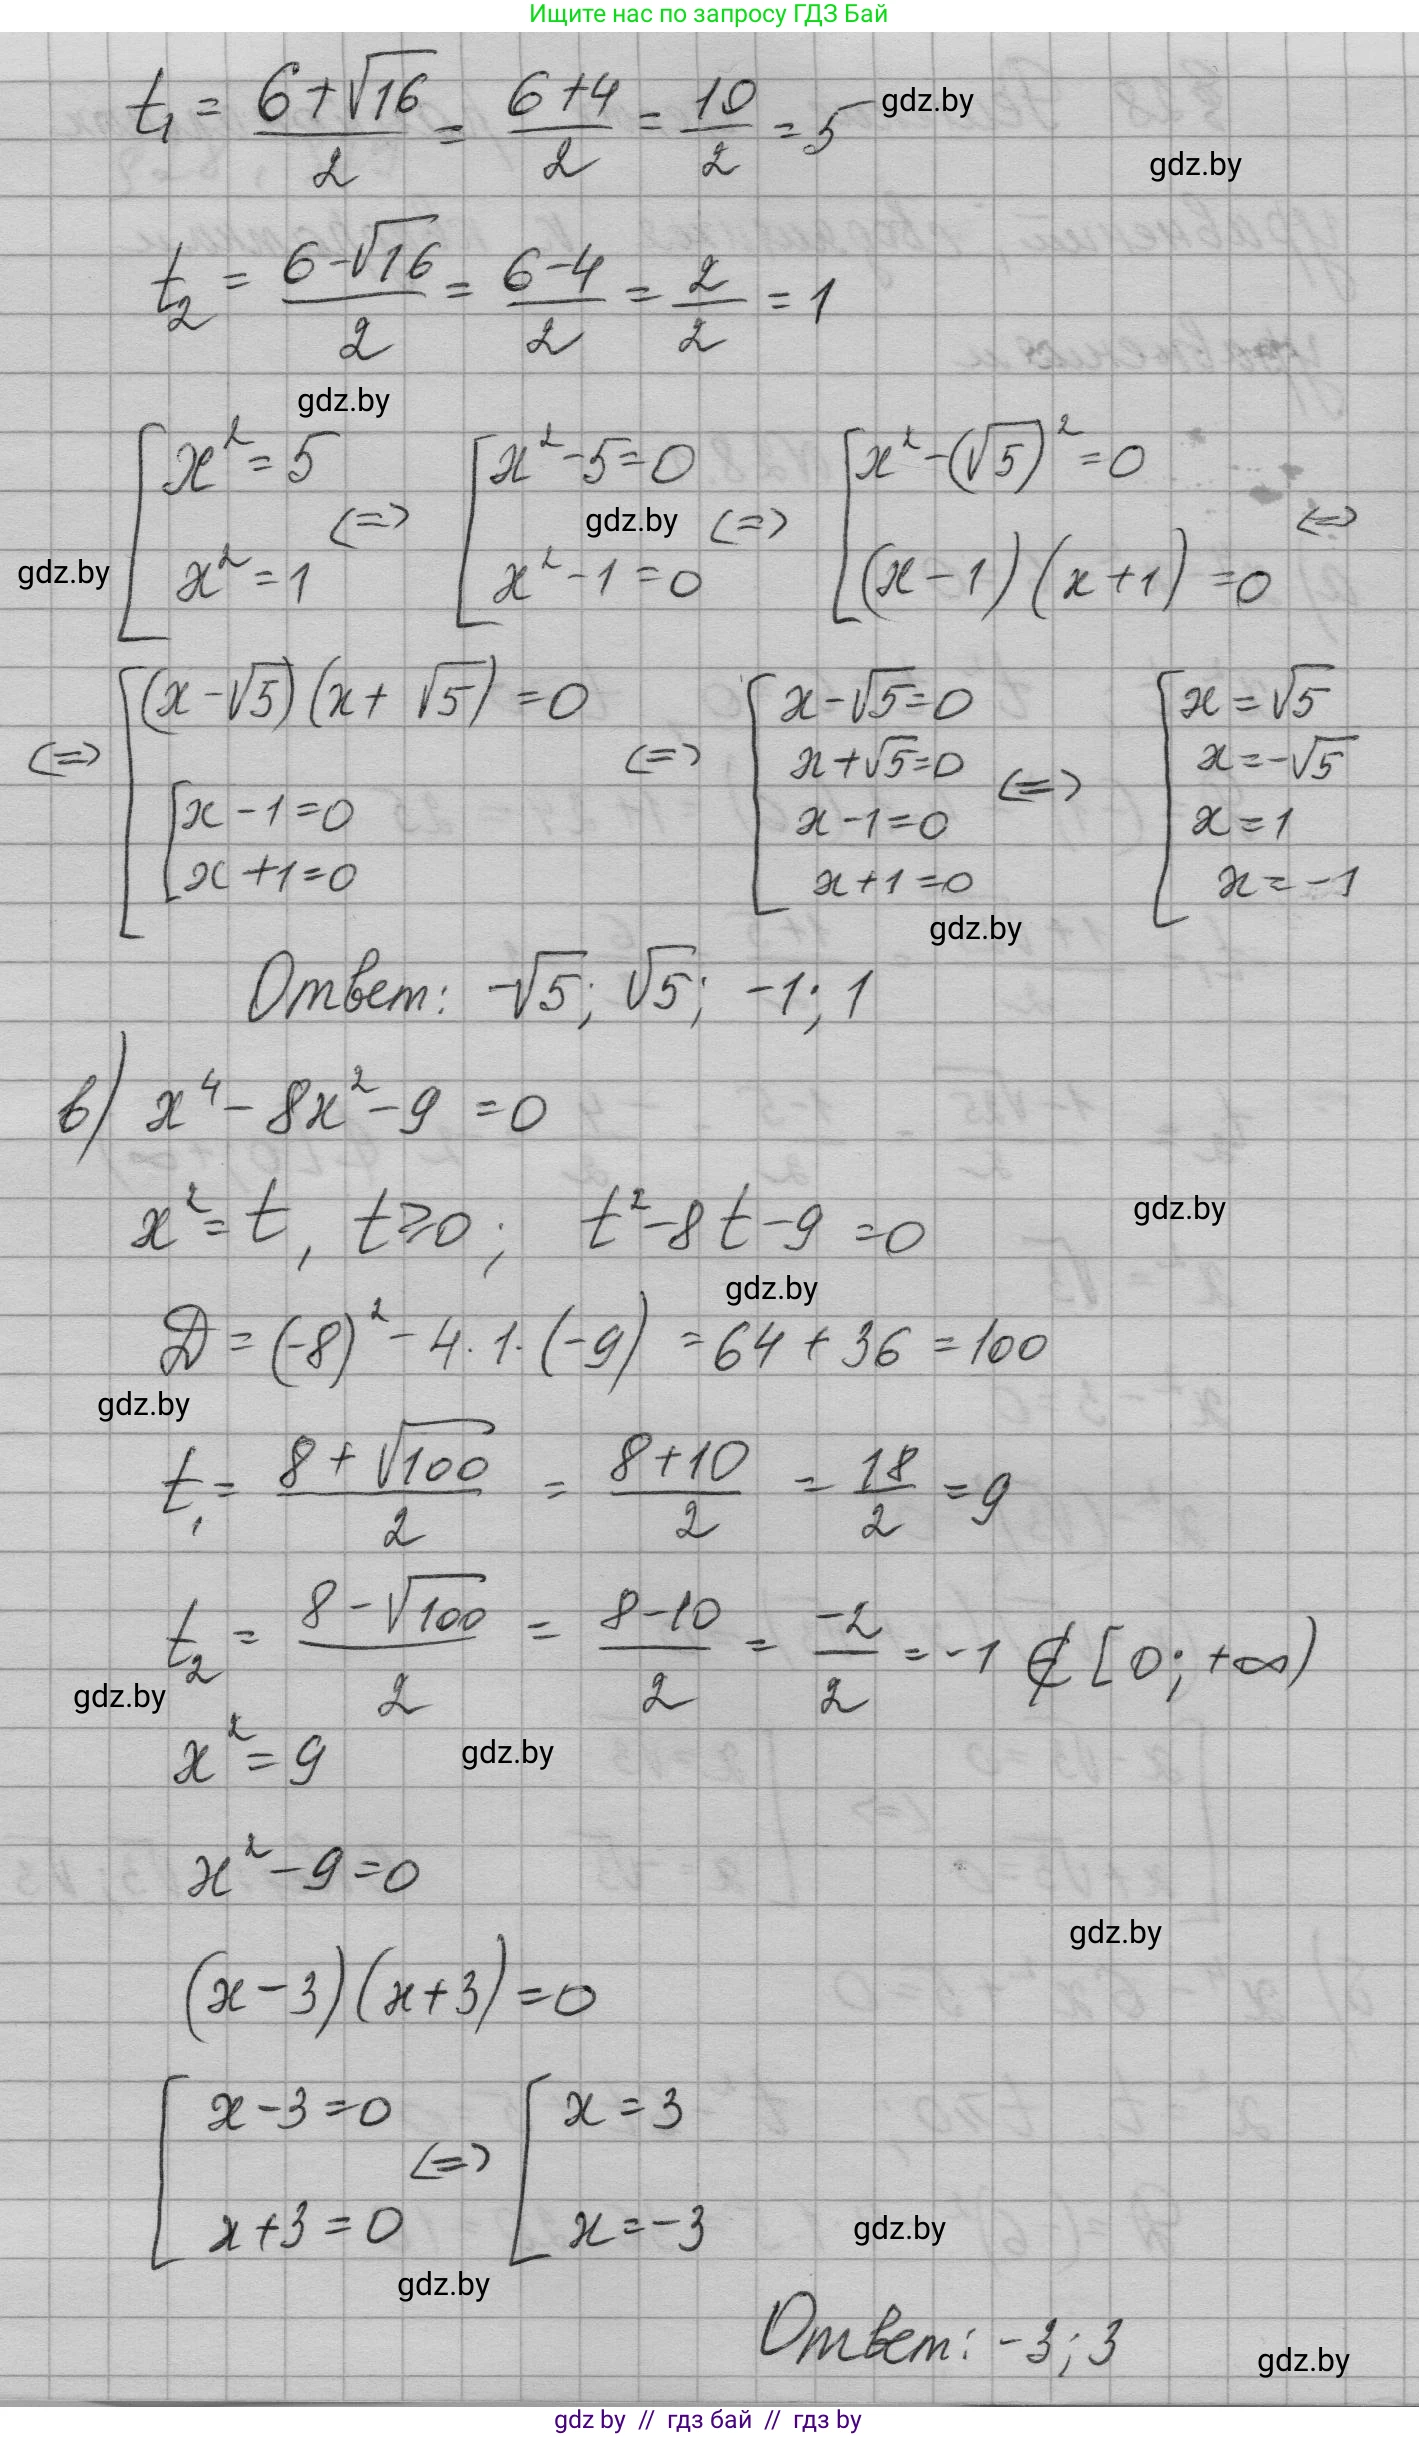 Ищите нас по запросу ГДЗ Бай
t₁ = (6+√16)/2 = (6+4)/2 = 10/2 = 5
gdz.by
gdz.by
t₂ = (6-√16)/2 = (6-4)/2 = 2/2 = 1
gdz.by
[x² = 5 <=> [x² - 5 = 0 <=> [x² - (√5)² = 0 <=>
gdz.by
gdz.by
x² = 1 x² - 1 = 0 (x - 1)(x + 1) = 0
<=> [(x - √5)(x + √5) = 0 <=> [x - √5 = 0 <=> [x = √5
x + √5 = 0 x = -√5
[x - 1 = 0 x - 1 = 0 x = 1
x + 1 = 0 x + 1 = 0 x = -1
gdz.by
Ответ: -√5; √5; -1; 1
в) x⁴ - 8x² - 9 = 0
x² = t, t ⩾ 0; t² - 8t - 9 = 0
gdz.by
gdz.by
D = (-8)² - 4·1·(-9) = 64 + 36 = 100
gdz.by
t₁ = (8 + √100)/2 = (8+10)/2 = 18/2 = 9
t₂ = (8 - √100)/2 = (8-10)/2 = -2/2 = -1 ∉ [0; +∞)
gdz.by
x² = 9
gdz.by
x² - 9 = 0
gdz.by
(x - 3)(x + 3) = 0
[x - 3 = 0 <=> [x = 3
x + 3 = 0 x = -3
gdz.by
gdz.by
Ответ: -3; 3
gdz.by
gdz by // гдз бай // гдз by